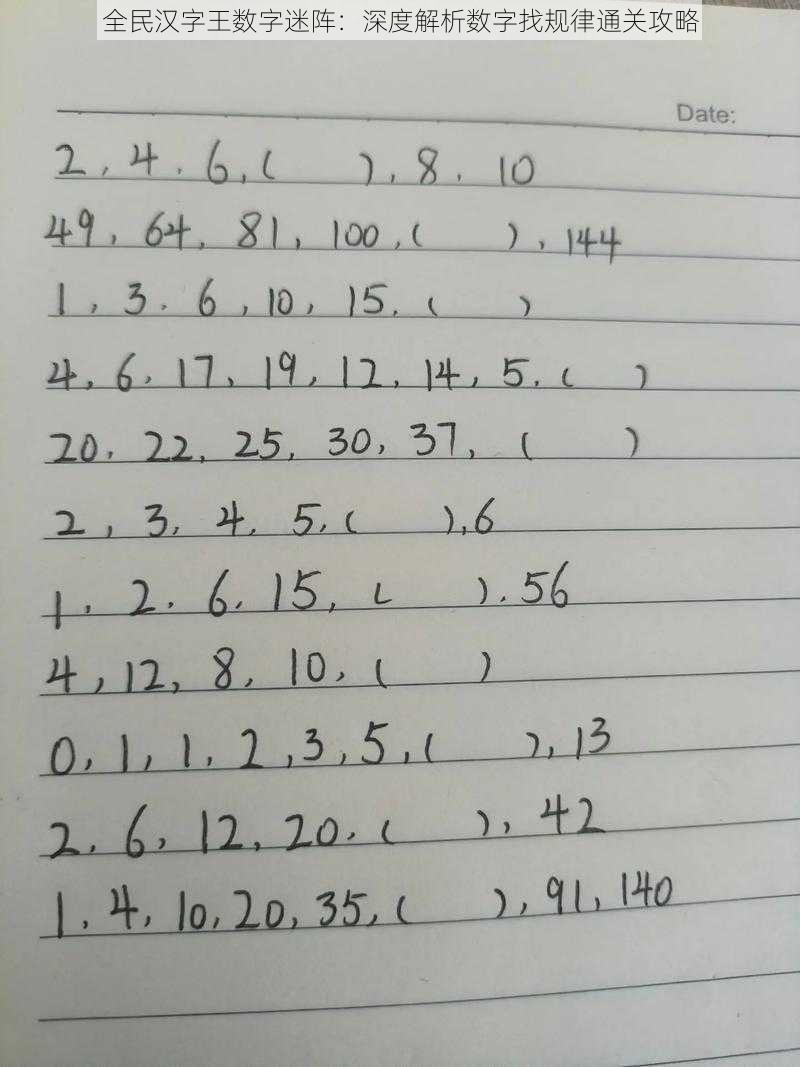 全民汉字王数字迷阵：深度解析数字找规律通关攻略
Date:
2, 4, 6, ( ), 8, 10
49, 64, 81, 100, ( ), 144
1, 3, 6, 10, 15, ( )
4, 6, 17, 19, 12, 14, 5, ( )
20, 22, 25, 30, 37, ( )
2, 3, 4, 5, ( ), 6
1, 2, 6, 15, ( ), 56
4, 12, 8, 10, ( )
0, 1, 1, 2, 3, 5, ( ), 13
2, 6, 12, 20, ( ), 42
1, 4, 10, 20, 35, ( ), 91, 140